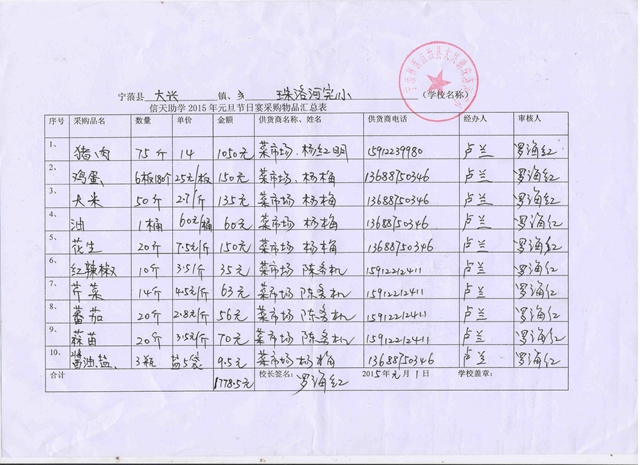 宁蒗县 大兴 镇、乡 珠洛河完小 (学校名称)
信天助学2015年元旦节日宴采购物品汇总表
序号 采购品名 数量 单价 金额 供货商名称、姓名 供货商电话 经办人 审核人
1、 猪肉 75斤 14 1050元 菜市场、杨红明 15912239980 卢兰 罗海红
2、 鸡蛋 6板180个 25元/板 150元 菜市场、杨梅 13688750346 卢兰 罗海红
3、 大米 50斤 2.7/斤 135元 菜市场 杨梅 13688750346 卢兰 罗海红
4、 油 1桶 60元/桶 60元 菜市场 杨梅 13688750346 卢兰 罗海红
5、 花生 20斤 7.5元/斤 150元 菜市场 杨梅 13688750346 卢兰 罗海红
6、 红辣椒 10斤 3.5/斤 35元 菜市场 陈 15912212411 卢兰 罗海红
7、 芹菜 14斤 4.5元/斤 63元 菜市场 陈 15912212411 卢兰 罗海红
8、 蕃茄 20斤 2.8元/斤 56元 菜市场 陈 15912212411 卢兰 罗海红
9、 蒜苗 20斤 3.5元/斤 70元 菜市场 陈 15912212411 卢兰 罗海红
10、 酱油、盐、 3瓶 盐5袋 9.5元 菜市场 杨梅 13688750346 卢兰 罗海红
合计 1778.5元 校长签名: 罗海红 2015年元月1日 学校盖章: